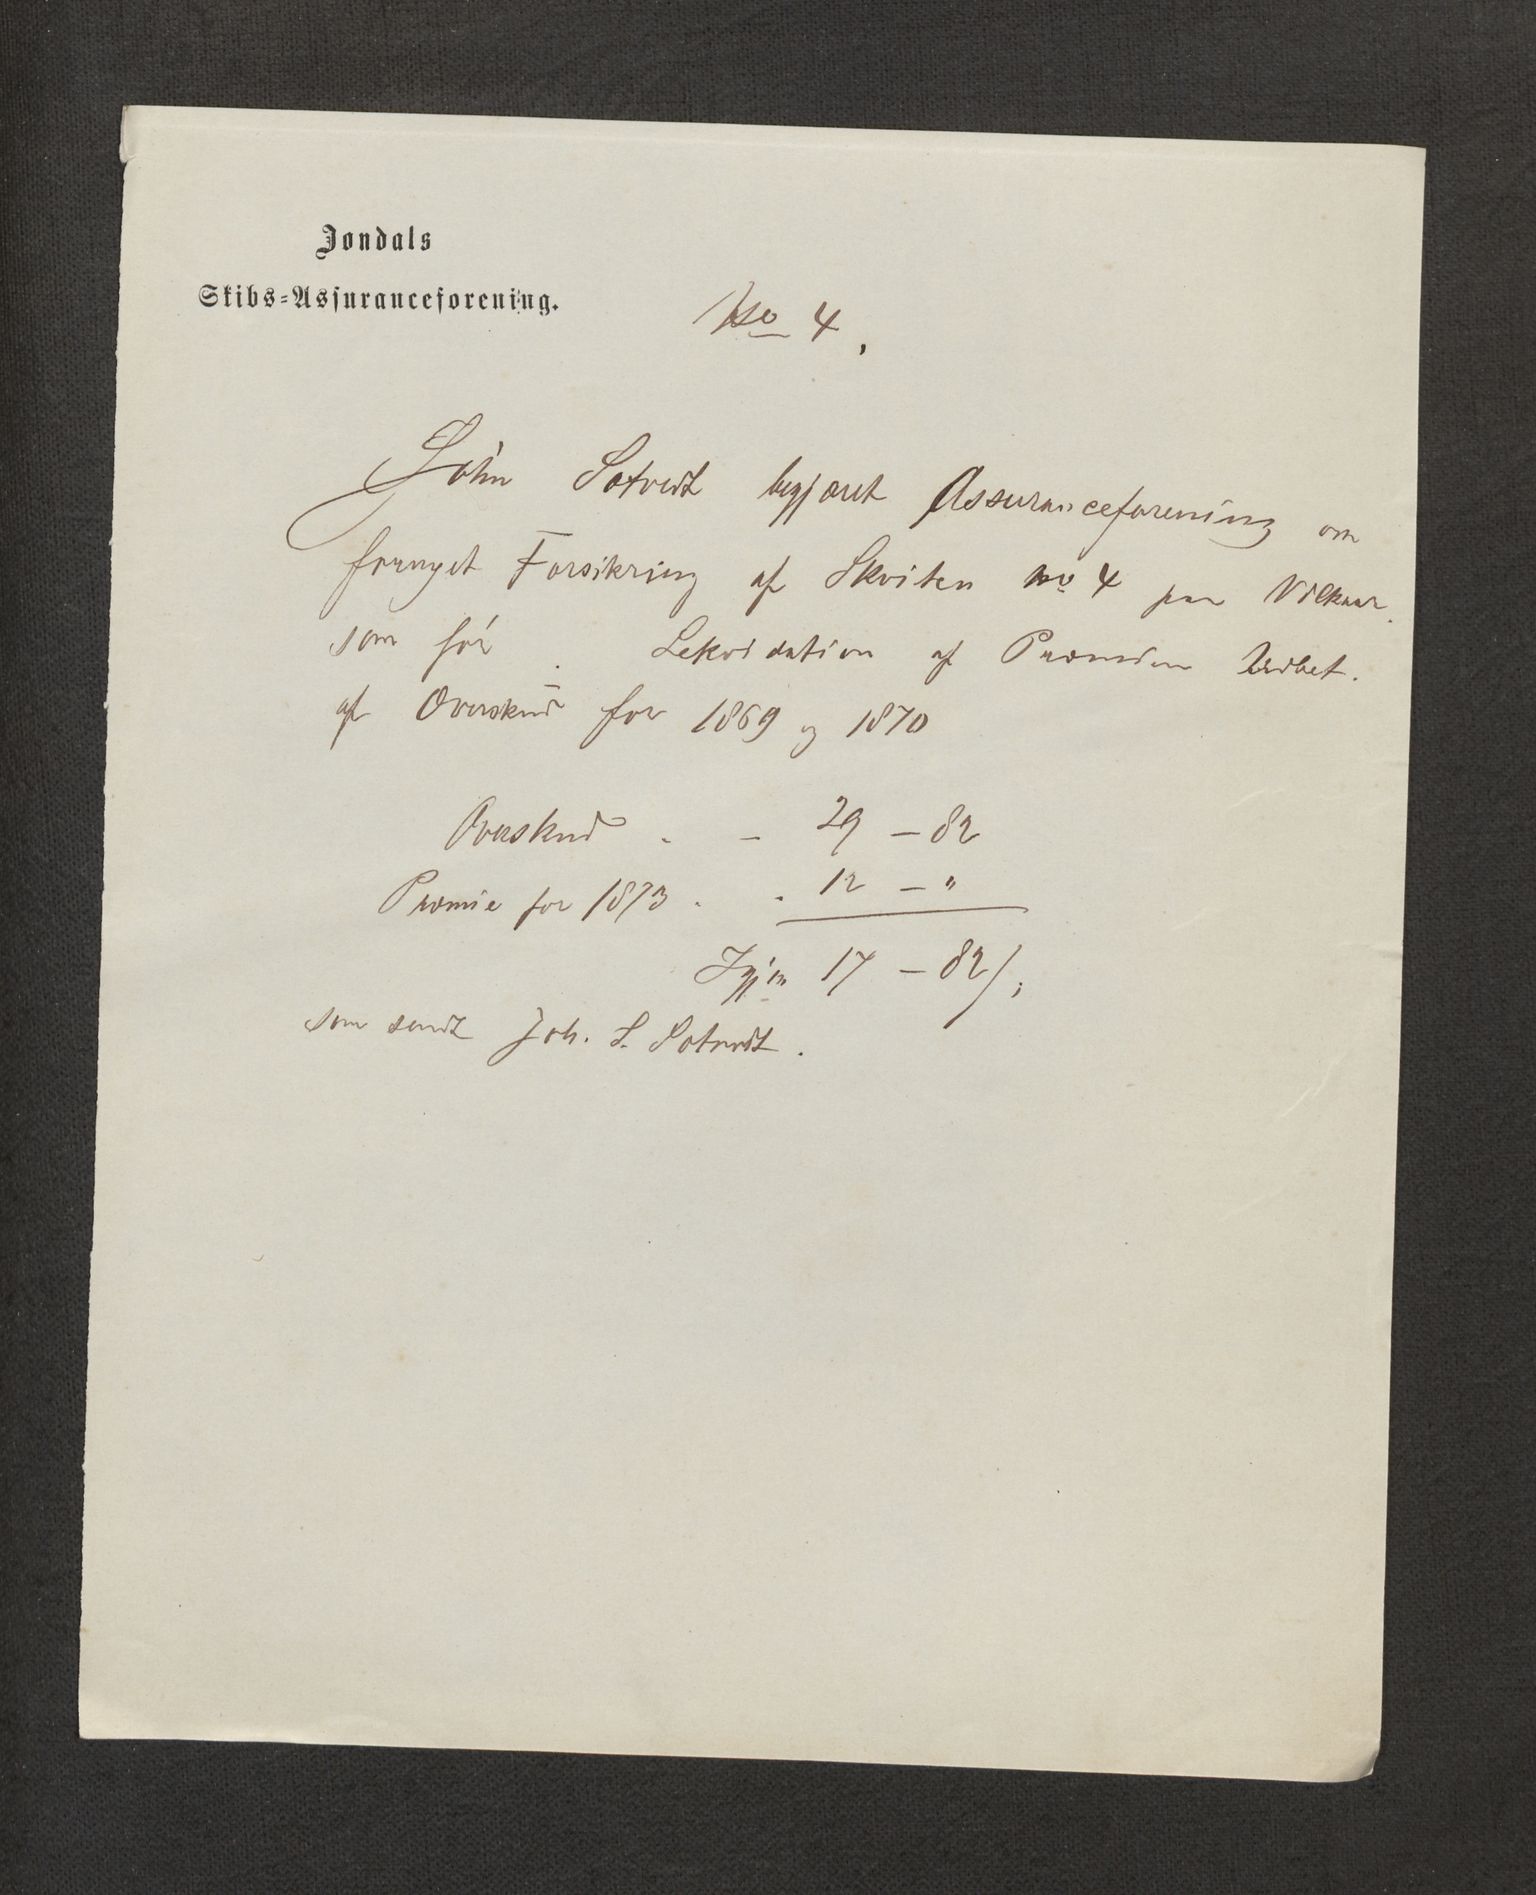 Jondals
Skibs-Assuranceforening.
No 4.
John Sotvedt begjæret Assuranceforening om
fornyet Forsikring af Skoiten No 4 paa Vilkaar
som før. Lekvidation af Præmien Udbet.
af Overskud for 1869 og 1870
Overskud . - 29 - 82
Præmie for 1873 . . 12 - "
Igjen 17 - 82/;
som sendt Joh. S. Sotvedt.